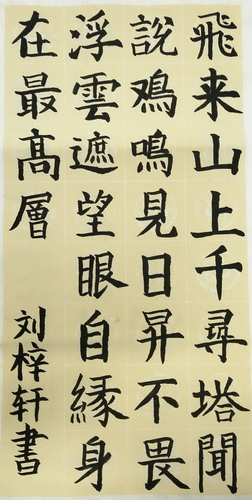 飛来山上千尋塔聞
説鳮鳴見日昇不畏
浮雲遮望眼自緣身
在最高層
刘梓轩書